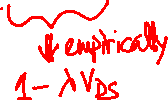 ⇓ empirically
1 - λ V_DS